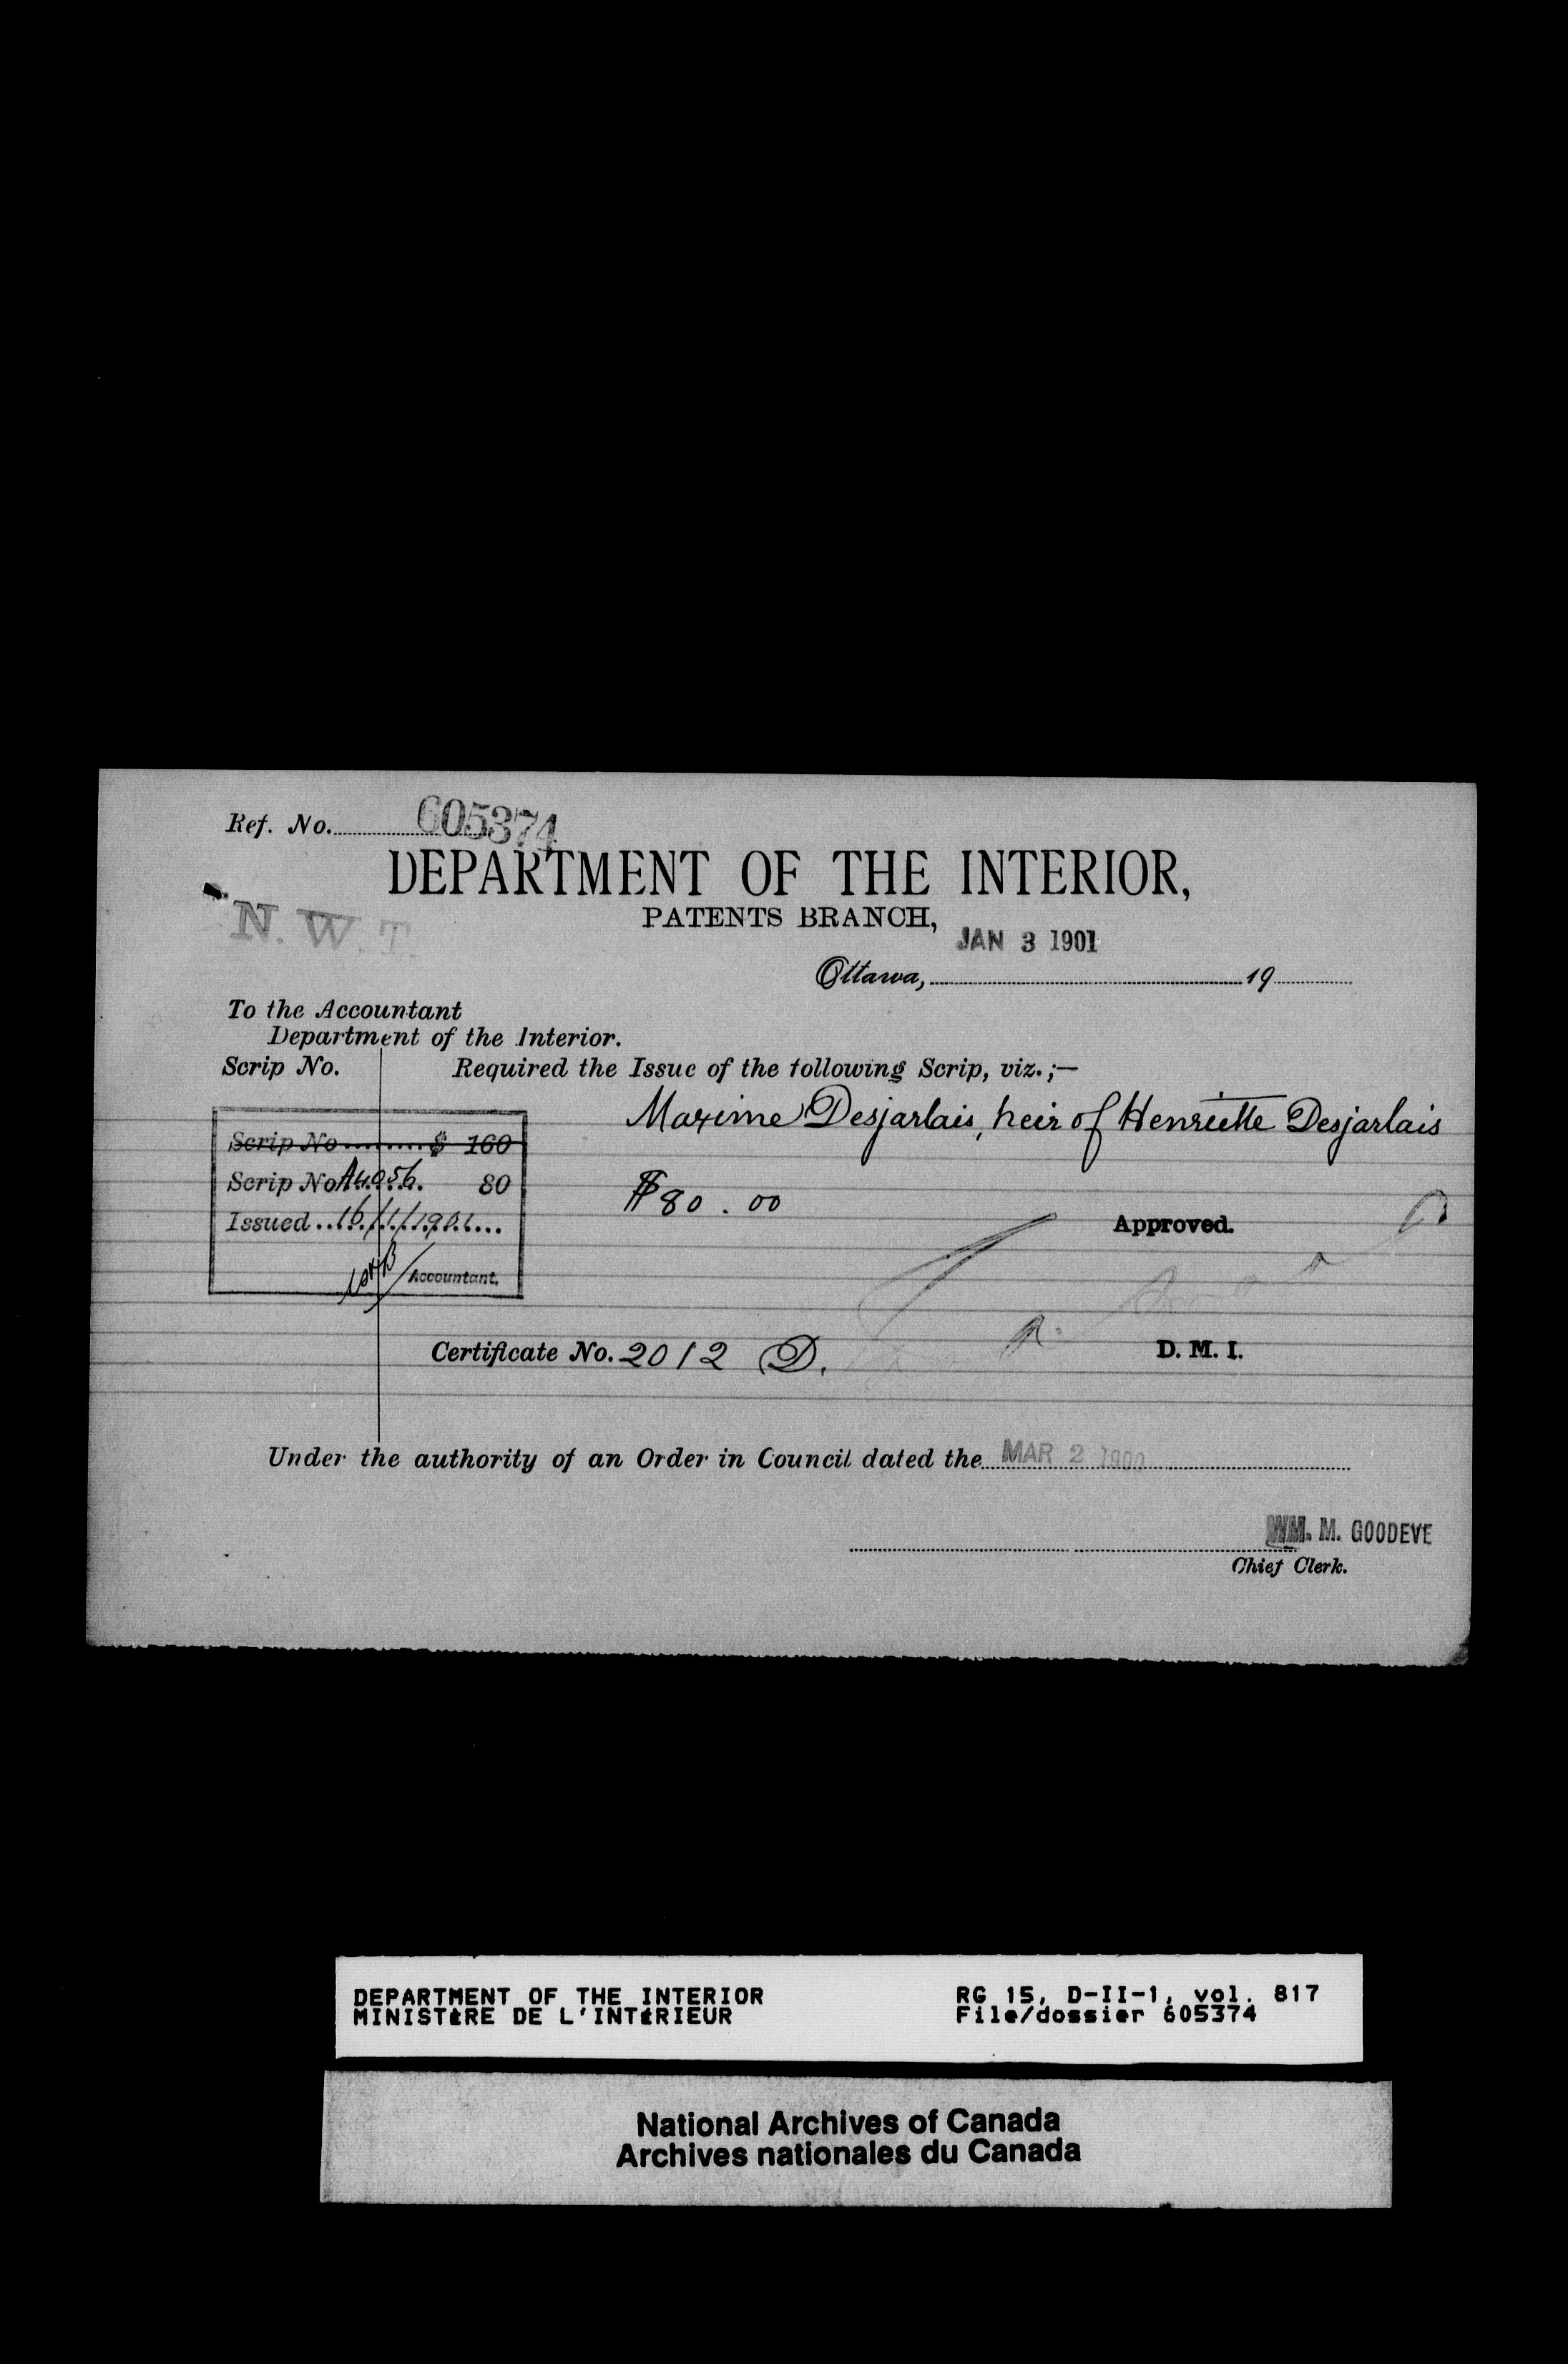 Ref. No. 605374
DEPARTMENT OF THE INTERIOR,
N. W. T
PATENTS BRANCH,
JAN 3 1901
Ottawa, 19
To the Accountant
Department of the Interior.
Scrip No. Required the Issue of the following Scrip, viz.;—
Maxime Desjarlais, heir of Henriette Desjarlais
Scrip No $ 160
Scrip No A4956. 80
$80.00
Issued 16/1/1901
Approved.
Accountant.
Certificate No. 2012 D.
D. M. I.
Under the authority of an Order in Council dated the MAR 2 1900
WM. M. GOODEVE
Chief Clerk.
DEPARTMENT OF THE INTERIOR RG 15, D-II-1, vol. 817
MINISTÈRE DE L'INTÉRIEUR File/dossier 605374
National Archives of Canada
Archives nationales du Canada